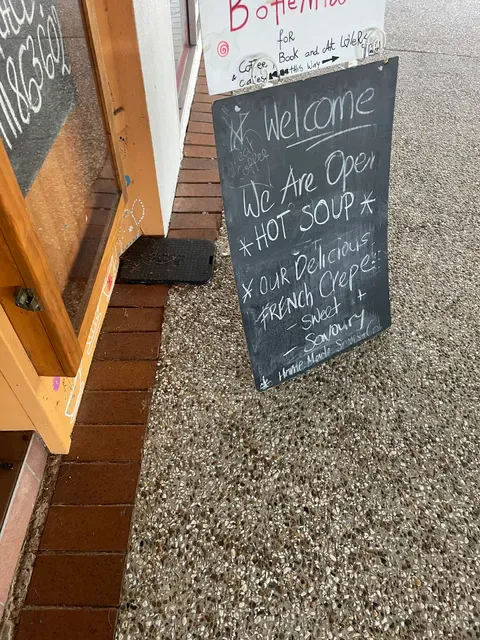 for
Book and Art Lovers
Coffee
cakes this way →
Welcome
We Are Open
*HOT SOUP*
* OUR Delicious
FRENCH Crepe
- Sweet +
- Savoury
* Home Made